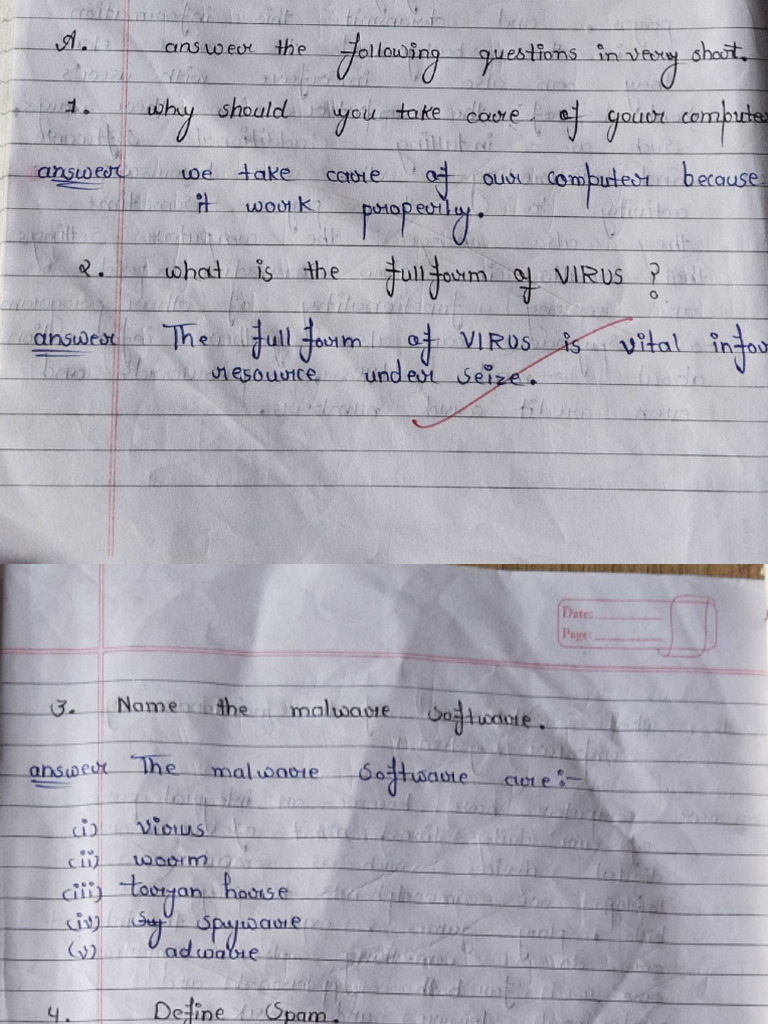 A. answer the following questions in very short.
1. why should you take care of your compute
answer we take care of our computer because
it work properily.
2. what is the full form of VIRUS ?
answer The full form of VIRUS is vital infor
resource under seize.
Date:
Page:
3. Name the malware software.
answer The malware software are:-
(i) virus
(ii) worm
(iii) torjan horse
(iv) spyware
(v) adware
4. Define Spam.